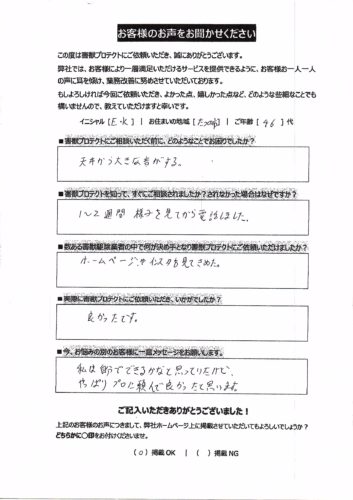 お客様のお声をお聞かせください
この度は害獣プロテクトにご依頼いただき、誠にありがとうございます。
弊社では、お客様により一層満足いただけるサービスを提供できるように、お客様お一人お一人
の声に耳を傾け、業務改善に努めさせていただいております。
もしよろしければ今回ご依頼いただき、よかった点、嬉しかった点など、どのような些細なことでも
構いませんので、教えていただけますと幸いです。
イニシャル [E.K] | お住まいの地域 [ ] | ご年齢 [46] 代
■害獣プロテクトにご相談いただく前に、どのようなことでお困りでしたか?
天井から大きな音がする。
■害獣プロテクトを知って、すぐにご相談されましたか?されなかった場合はなぜですか?
1〜2週間 様子を見てから電話しました。
■数ある害獣駆除業者の中で何が決め手となり害獣プロテクトにご依頼いただけましたか?
ホームページやインスタを見てきめた。
■実際に害獣プロテクトにご依頼いただき、いかがでしたか?
良かったです。
■今、お悩みの別のお客様に一言メッセージをお願いします。
私は自分でできるかなと思っていたけど、
やっぱりプロに頼んで良かったと思います。
ご記入いただきありがとうございました!
上記のお客様のお声につきまして、弊社ホームページ上に掲載させていただいてもよろしいでしょうか?
どちらかに〇印をお付けくださいませ。
(○) 掲載OK | ( ) 掲載NG